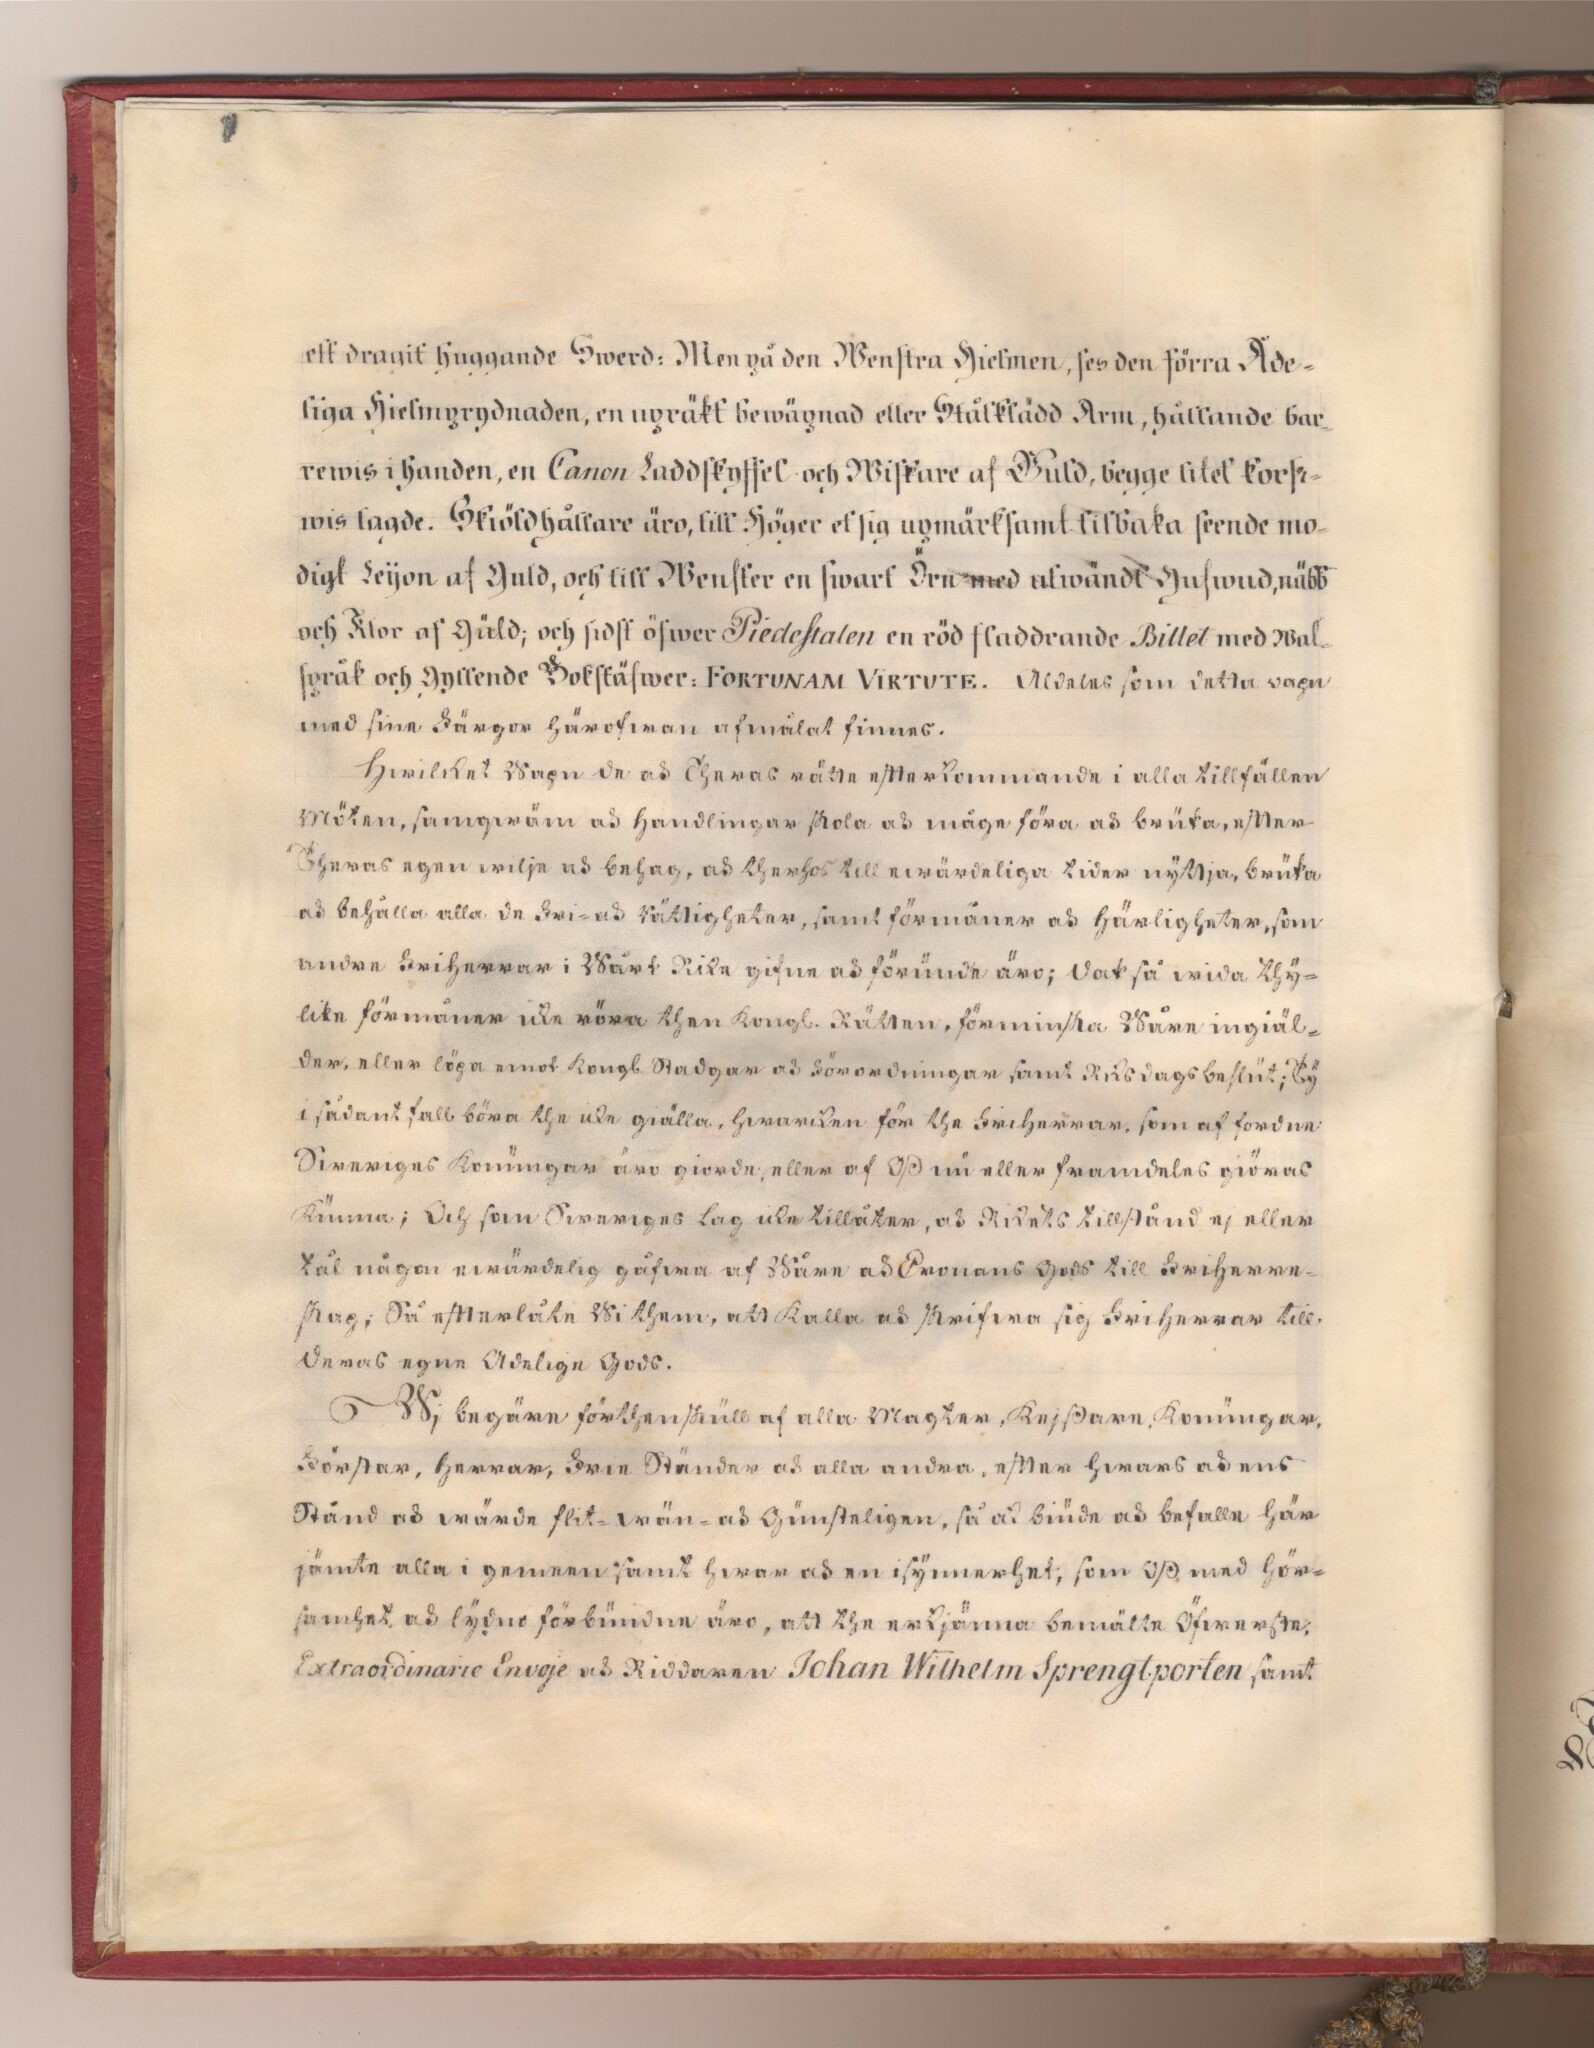 ett dragit huggande Swerd: Men på den Wenstra Hielmen, ses den förra Ade-
liga Hielmprydnaden, en upräkt bewäpnad eller Stålklädd Arm, hållande bar-
rewis i handen, en Canon Laddskyffel och Wiskare af Guld, begge litet korss-
wis lagde. Skiöldhållare äro, till Höger et sig upmärksamt tilbaka seende mo-
digt Leijon af Guld, och till Wenster en swart Örn med afwändt Hufwud, näbb
och Klor af Guld; och sidst öfwer Piedestalen en röd fladdrande Billet med Wal-
språk och Gyllende Bokstäfwer: FORTUNAM VIRTUTE. Aldeles som detta vapn
med sine Färgor härofwan afmålat finnes.
Hwilcket Wapn de och Theras rätte efterkommande i alla tillfällen
Möten, samqwäm och Handlingar skola och måge föra och brüka, efter
Theras egen wilje och behag, och therhos till ewärdeliga tider nyttja, brüka
och behålla alla de Fri- och Rättigheter, samt förmåner och Härligheter, som
andre Friherrar i Wårt Rike gifne och föründe äro; Dock så wida thy-
like förmåner icke röra then Kongl. Rätten, förminska Wåre ingiäl-
der, eller löpa emot Kongl. Stadgar och Förordningar samt Riksdagsbeslüt; Ty
i sådant fall böra the icke giälla, hwarcken för the Friherrar, som af fordne
Sweriges Konüngar äro giorde, eller af Oß nü eller framdeles giöras
Künna; Och som Sweriges Lag icke tillåter, och Rikets tillstånd ej eller
tål någon ewärdelig gåfwa af Wåre och Cronans Gods till Friherre-
skap; Så efterlåte Wi them, att Kalla och skrifwa sig Friherrar till
deras egne Adelige Gods.
Wj begäre förthenskull af alla Magter, Kejßare, Konüngar,
Förstar, Herrar, Frie Ständer och alla andra, efter hwars och ens
Stånd och wärde flit- wän- och Günsteligen, så och biüde och befalle här
jämte alla i gemeen samt hwar och en isynnerhet, som Oß med hör-
samhet och lydno förbündne äro, att the erkjänna bemälte Öfwerste,
Extraordinarie Envoje och Riddaren Johan Wilhelm Sprengtporten samt